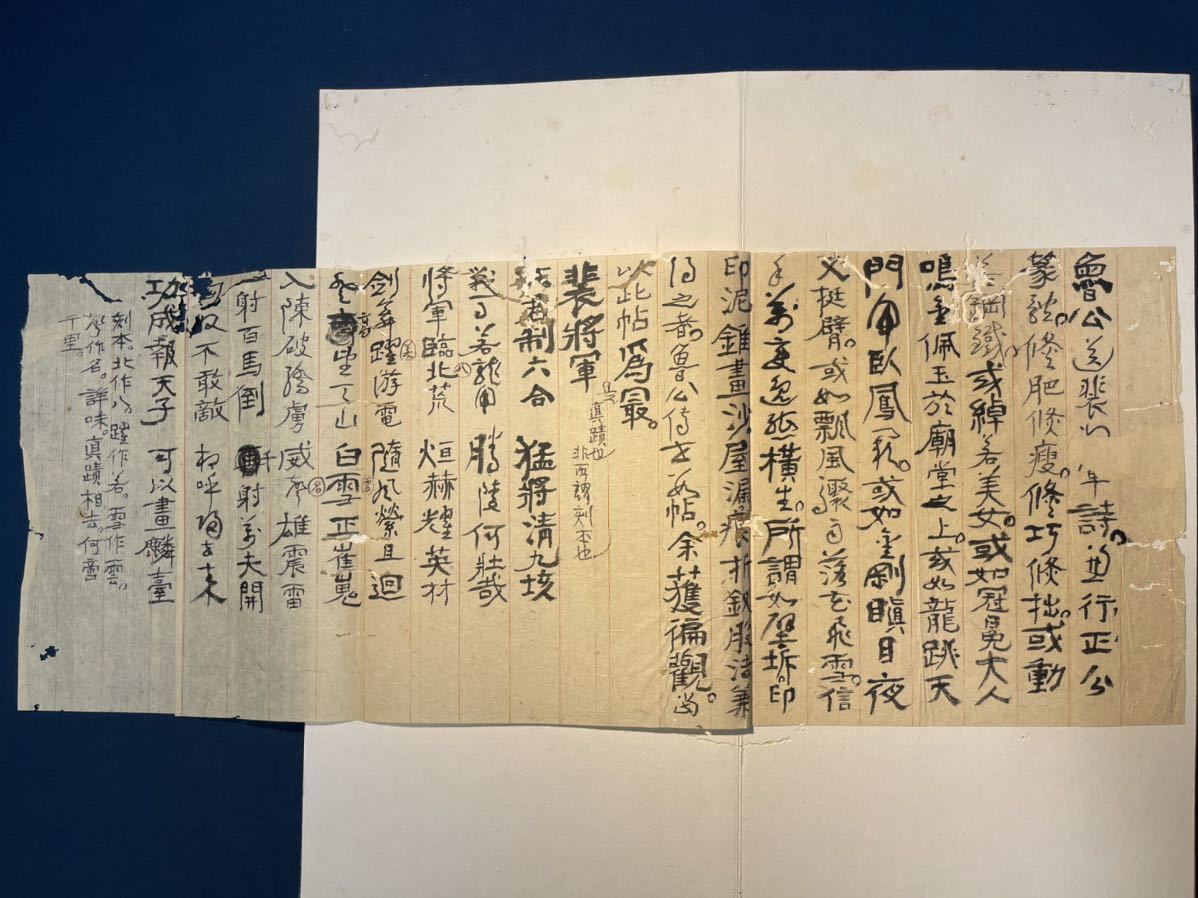 魯公送裴將軍詩。並行正公
篆。欻修肥倏瘦。倏巧倏拙。或動
若鋼鐵。或綽若美女。或如冠冕大人
鳴金佩玉於廟堂之上。或如龍跳天
門虎臥鳳閣。或如金剛瞋目夜
叉挺臂。或如飄風驟雨落花飛雪。信
手萬變逸態橫生。所謂如壁坼。印
印泥錐畫沙屋漏痕折釵股法兼
得之者。魯公傳世 帖。余獲徧觀尚。
以此帖爲最。
真蹟也
非所謂刻本也
裴將軍
大君制六合 猛將清九垓
戰馬若龍虎 騰陵何壯哉
將軍臨北荒 烜赫耀英材
劍舞躍游電 隨風縈且迴
登高望天山 白雪正崔嵬
入陳破驕虜 威聲雄震雷
一射百馬倒 千射萬夫開
匈奴不敢敵 相呼歸去來
功成報天子 可以畫麟臺
刻本。北作八。躍作若。雪作雲。
聲作名。詳味。真蹟相去。何啻
千里。